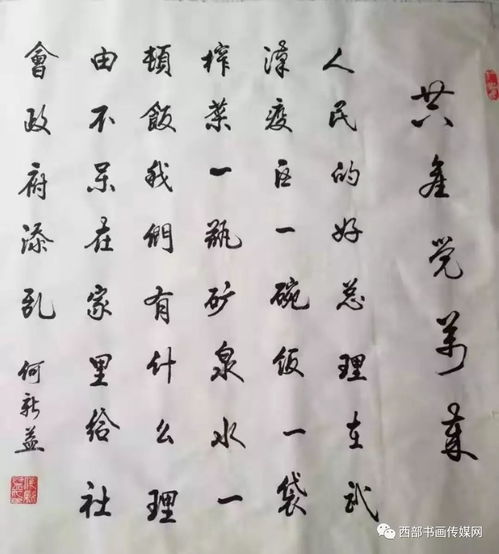 共產党萬歲
人民的好总理在武
漢疫区一碗饭一袋
榨菜一瓶矿泉水一
頓飯我們有什么理
由不呆在家里给社
會政府添乱
何新益
西部书画传媒网